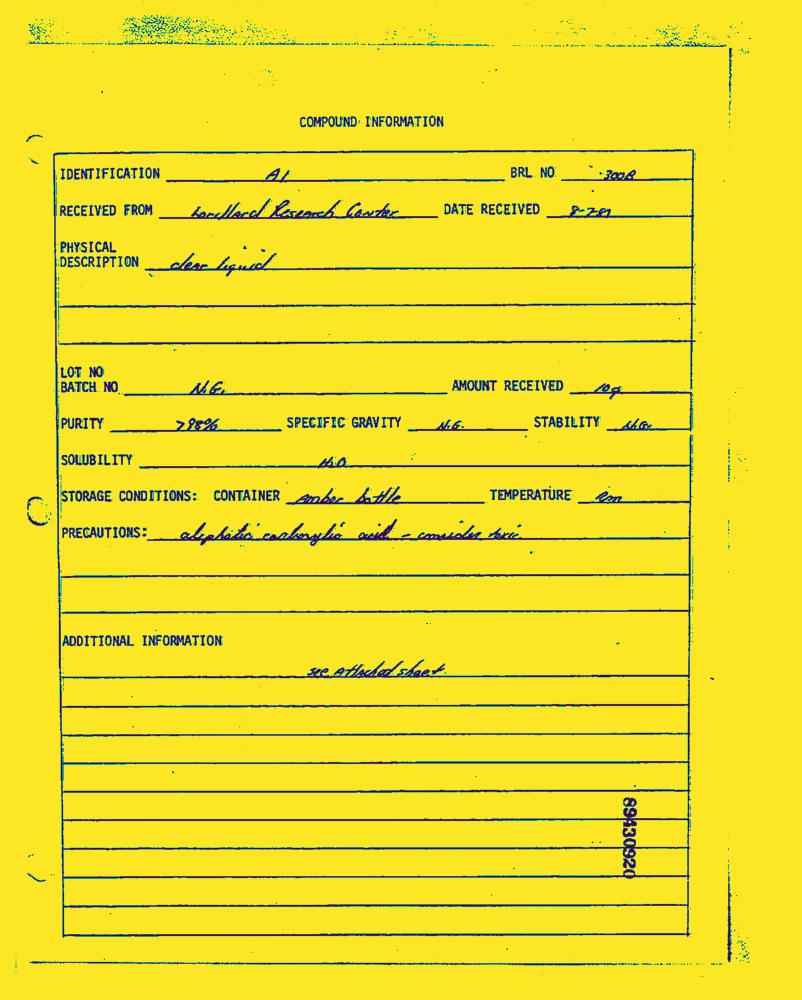 COMPOUND INFORMATION
IDENTIFICATION A1 BRL NO 300A
RECEIVED FROM Lorillard Research Center DATE RECEIVED 8-7-81
PHYSICAL
DESCRIPTION clear liquid
LOT NO
BATCH NO N.G. AMOUNT RECEIVED 10g
PURITY >98% SPECIFIC GRAVITY N.G. STABILITY N.G.
SOLUBILITY H2O
STORAGE CONDITIONS: CONTAINER amber bottle TEMPERATURE Rm
PRECAUTIONS: aliphatic carboxylic acid - consider toxic.
ADDITIONAL INFORMATION
see Attached sheet
89430920